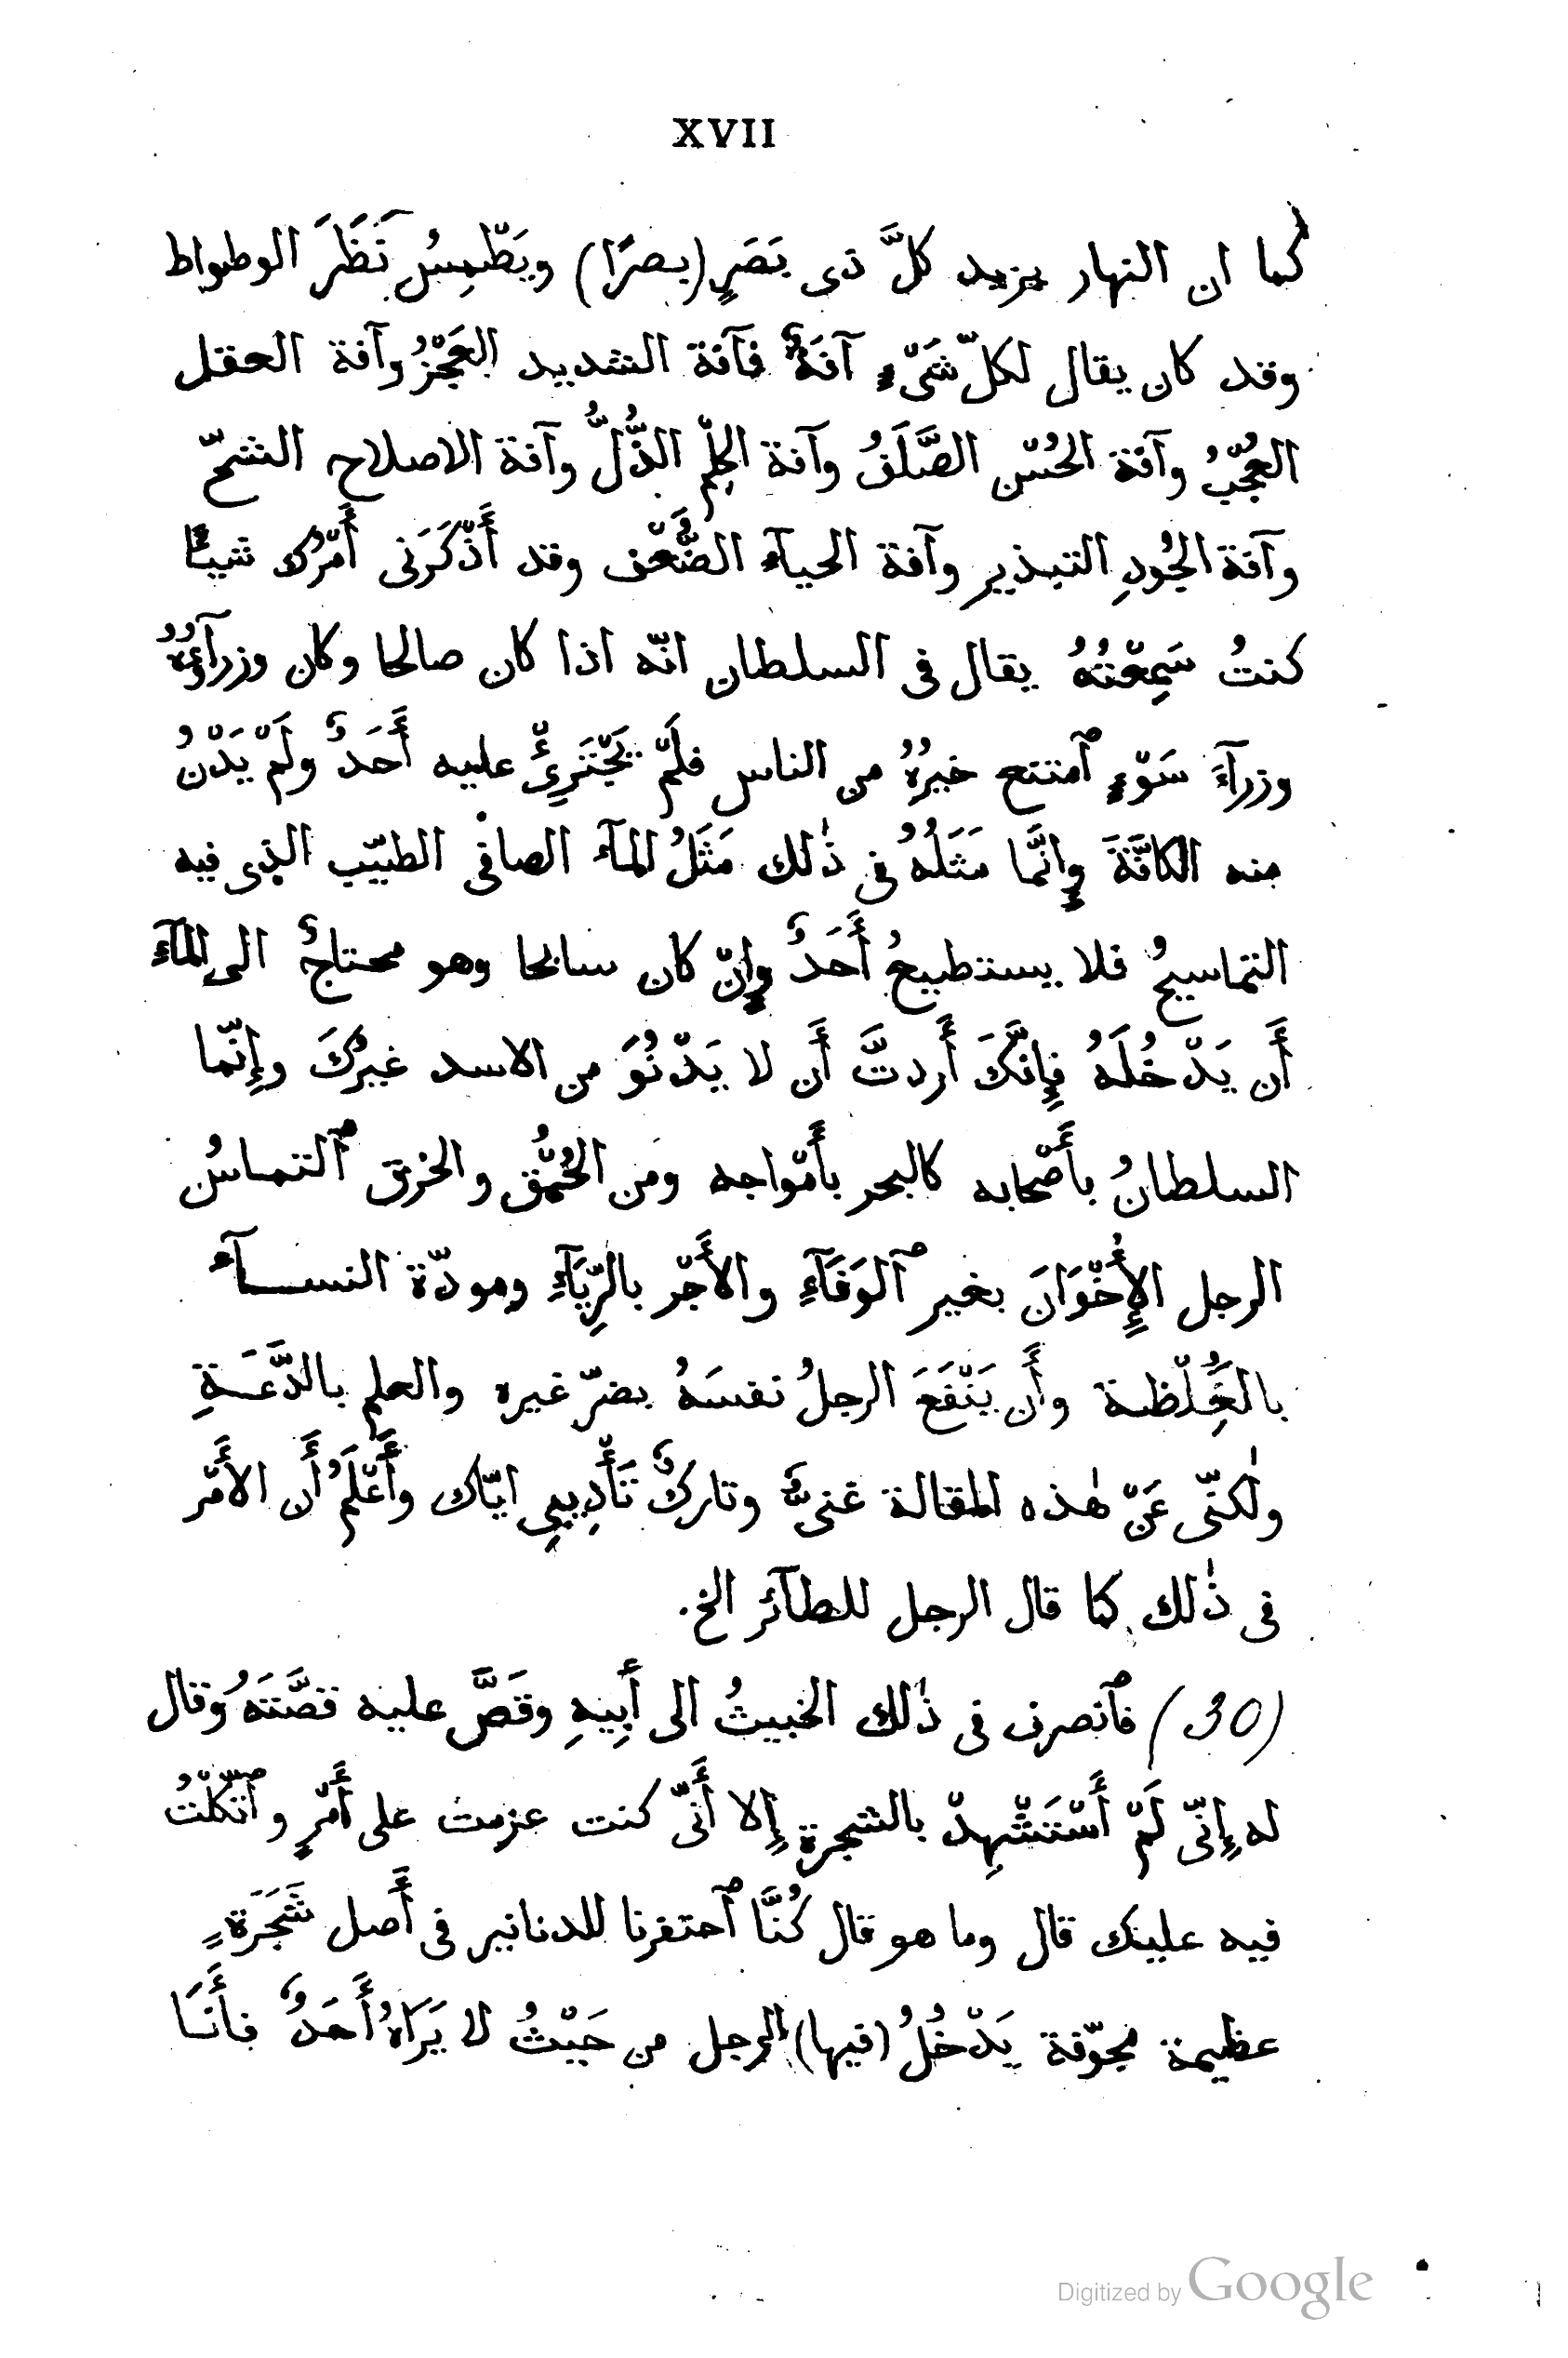 XVII
كما ان النهار يزيد كلَّ ذى بَصَرٍ (بصرًا) ويَطْمِسُ نَظَرَ الوطواط
وقد كان يقال لكلّ شَىْءٍ آفَةٌ فآفة الشديد العَجْزُ وآفة العقل
العُجْبُ وآفة الحُسْن الصَّلَفُ وآفة الحِلْم الذُّلُّ وآفة الاصلاح الشحّ
وآفة الجُودِ التبذير وآفة الحيآء الضَُّعْف وقد أَذْكَرَنى أَمْرُك شيئًا
كنتُ سَمِعْتُهُ يقال فى السلطان انّه اذا كان صالحا وكان وزرآؤُهُ
وزرآءَ سَوْءٍ ٱمتنع خيرُهُ من الناس فلَمْ يَجْتَرِئْ عليه أَحَدٌ ولَمْ يَدْنُ
منه الكافَّةَ وإِنَّما مَثَلُهُ فى ذٰلك مَثَلُ المآء الصافى الطيّب الذى فيه
التماسيحُ فلا يستطيعُ أَحَدٌ وإِنْ كان سابحا وهو محتاجٌ الى المآء
أَن يَدْخُلَهُ فإِنَّكَ أَردتَّ أَن لا يَدْنُوَ من الاسد غيرُكَ وإِنّما
السلطانُ بأَصْحابه كالبحر بأَمْواجه ومَن الحُمُْق والخرق ٱلتماسُ
الرجل الإِخْوَانَ بغير ٱلوَفَآءِ والأَجْر بالرِّيَآءِ ومودّة النسآء
بالغُِلْظة وأَن يَنْفَعَ الرجلُ نفسَهُ بضرّ غيره والعلم بالدَّعَةِ
ولٰكنّى عَنْ هٰذه المقالة غنىٌّ وتاركٌ تَأْدِيبِى ايّاك وأَعْلَمُ أَن الأَمْر
فى ذٰلك كما قال الرجل للطآئر الخ.
(30) فٱنصرف فى ذٰلك الخبيثُ الى أَبِيهِ وقَصَّ عليه قصَّتَهُ وقال
له إِنّى لَمْ أَسْتَشْهِدْ بالشجرة إِلا أَنّى كنت عزمت على أَمْرٍ وٱتّكَلْتُ
فيه عليك قال وما هو قال كُنَّا ٱحتفرنا للدنانير فى أَصل شَجَرَةٍ
عظيمة مجوّفة يَدْخُلُ (فيها) الرجل من حَيْثُ لا يَرَاهُ أَحَدٌ فأَنَا
Digitized by Google